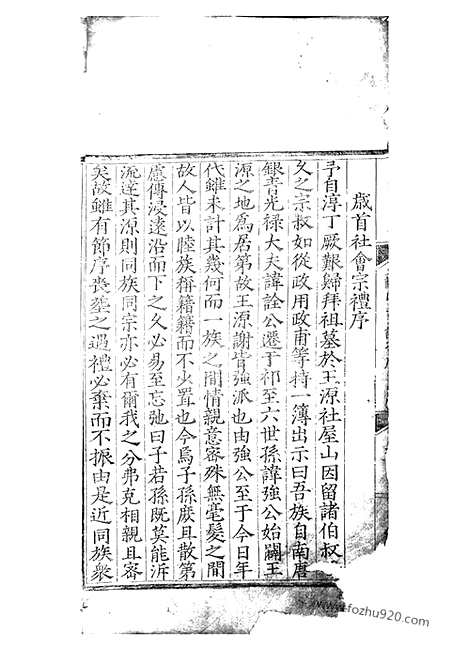 歲首社會宗禮序
予自淳丁厥艱歸拜祖墓於王源社屋山因留諸伯叔
久之宗叔如從政用政甫等持一簿出示曰吾族自南唐
銀青光祿大夫諱詮公遷于祁至六世孫諱強公始闢王
源之地為居第故王源謝皆強派也由強公至于今日年
代雖未計其幾何而一族之間情親意密殊無毫髮之間
故人皆以睦族稱籍籍而不少置也今焉子孫庶且散第
慮傳浸遠沿而下之久必易至忘弛曰子若孫既莫能泝
流達其源則同族同宗亦必有爾我之分弗克相親且密
矣故雖有節序喪塟之遇禮必棄而不振由是近同族衆
www.fozhu920.com